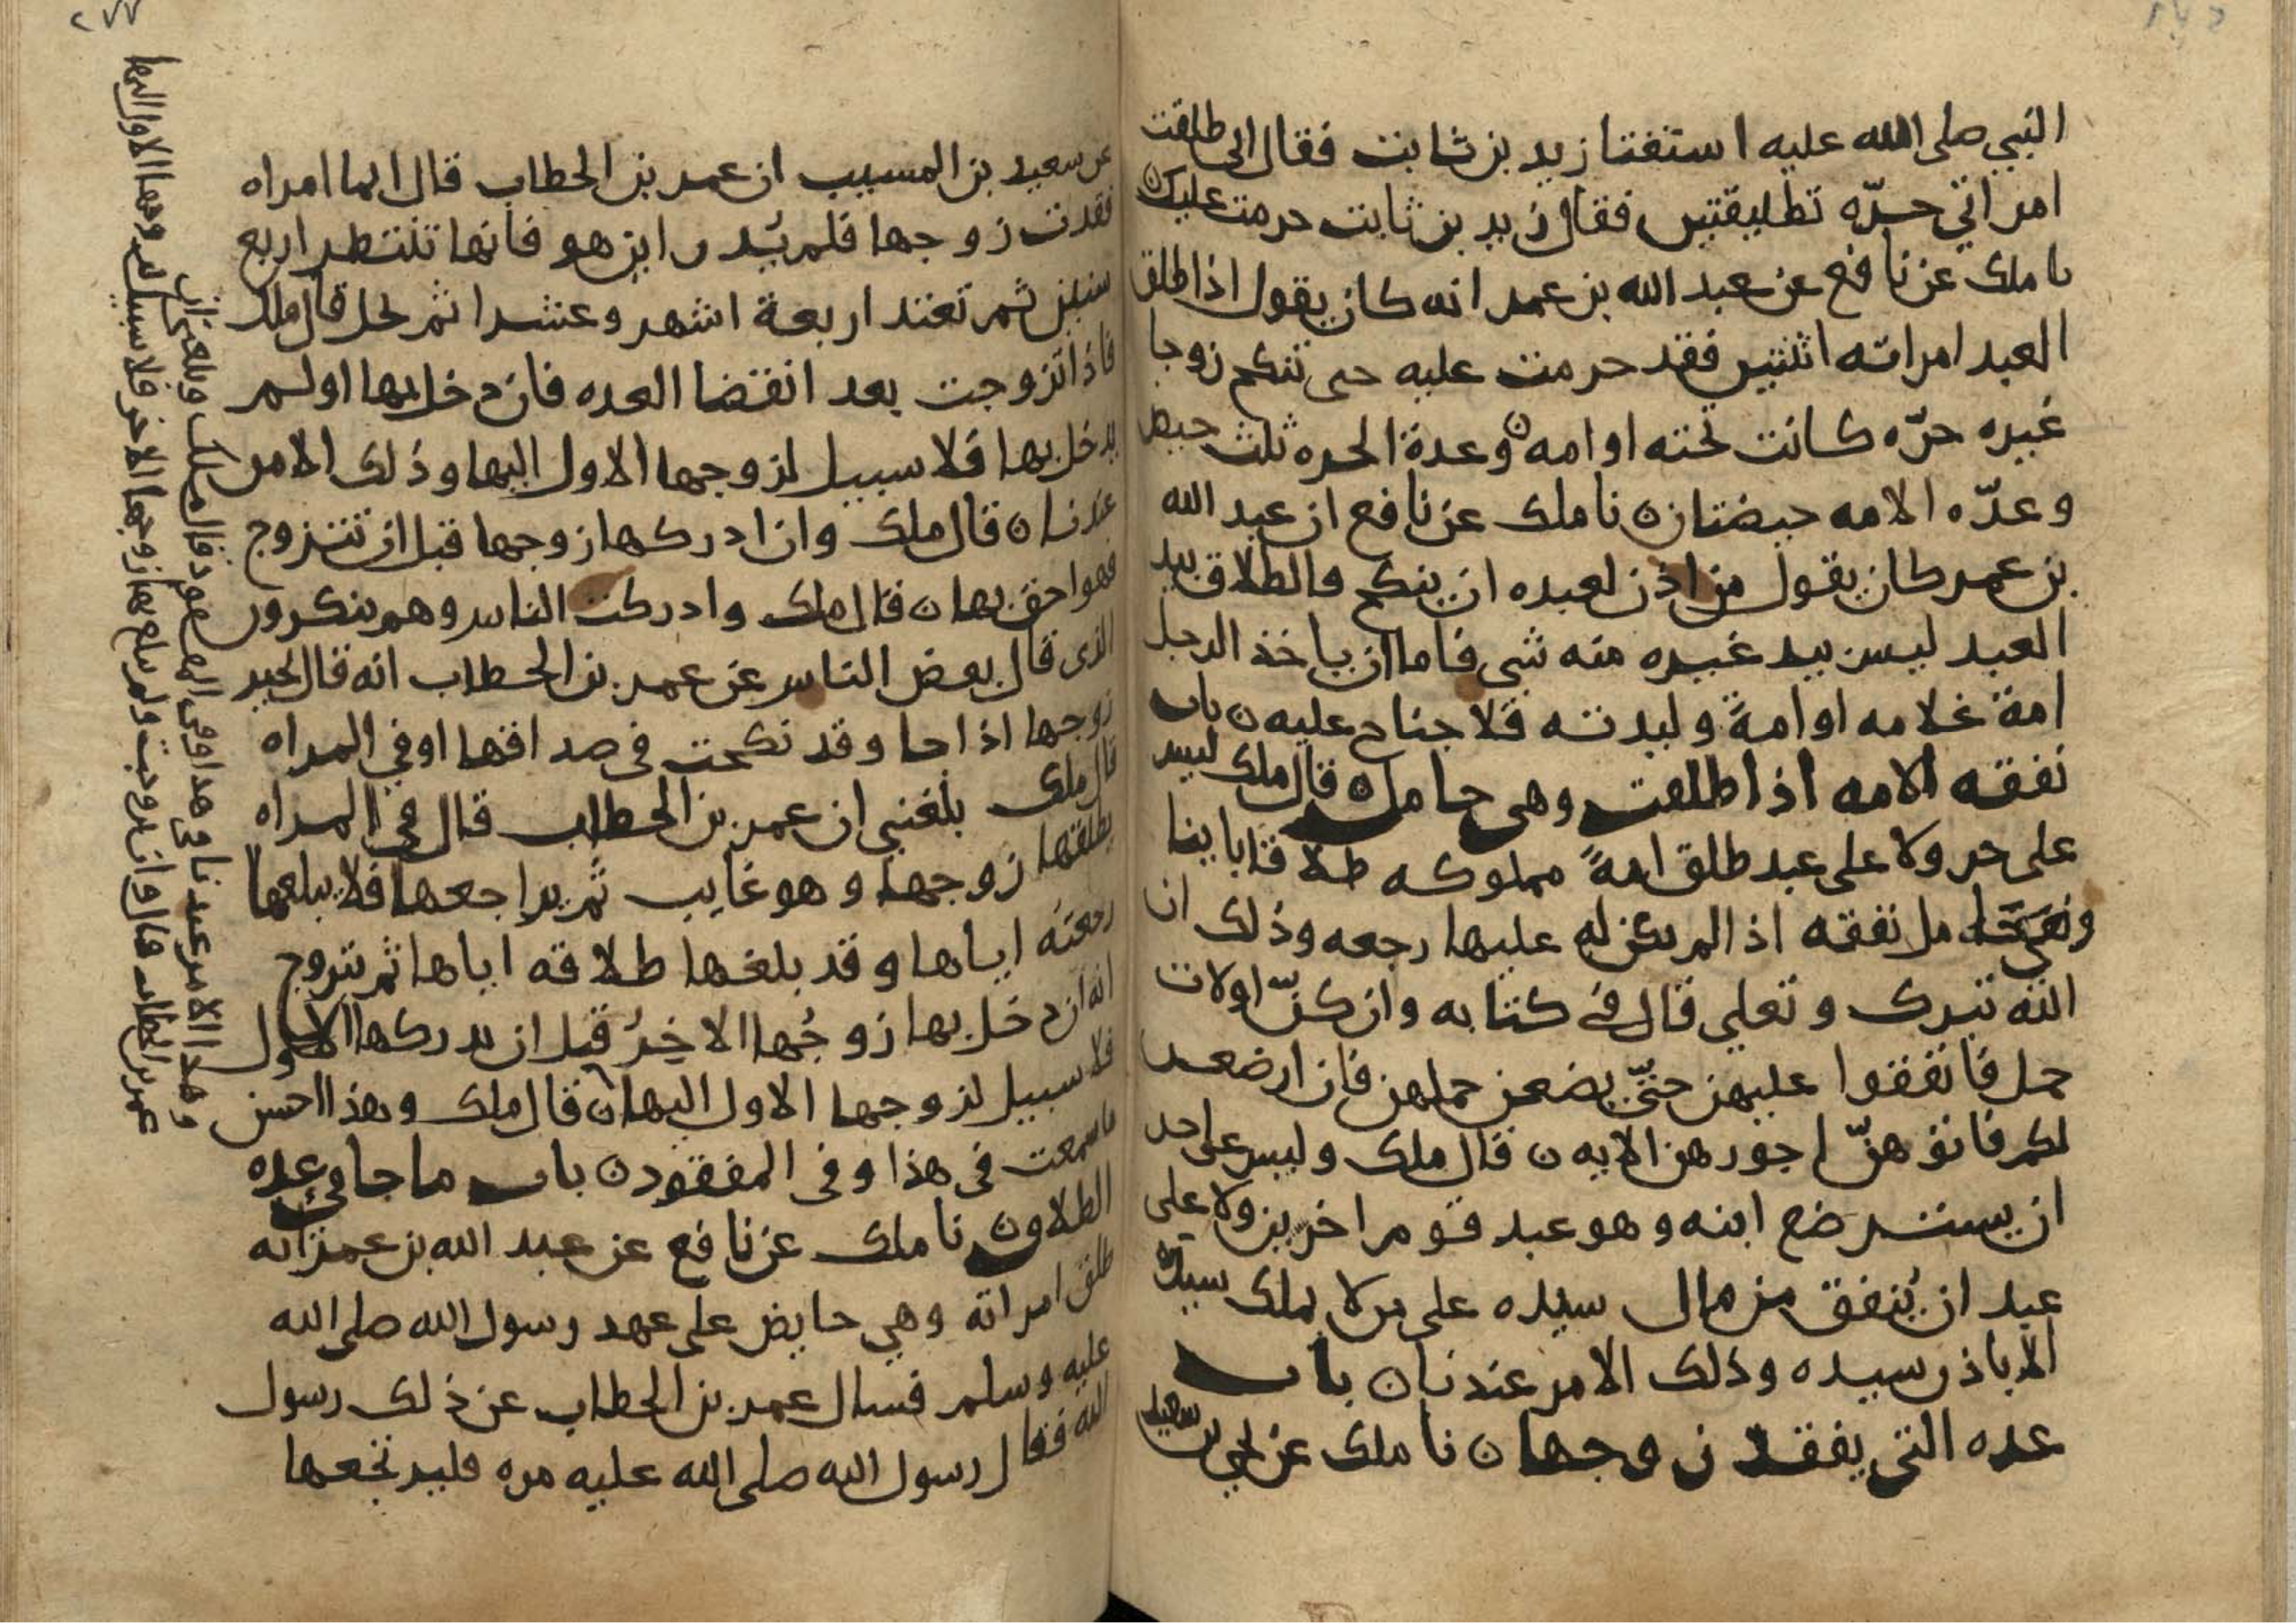 النبي صلى الله عليه استفتا زيد بن ثابت فقال اني طلقت
امراتي حرّه تطليقتين فقال زيد بن ثابت حرمت عليك ن
نا ملك عن نافع عن عبد الله بن عمر انه كان يقول اذا طلق
العبد امراته اثنتين فقد حرمت عليه حتى تنكح زوجا
غيره حرّه كانت تحته او امه ن وعدة الحره ثلث حيض
وعدّه الامه حيضتان ن نا ملك عن نافع ان عبد الله
بن عمر كان يقول من اذن لعبده ان ينكح فالطلاق بيد
العبد ليس بيد غيره منه شي فاما ان ياخذ الرجل
امة غلامه او امة وليدته فلا جناح عليه ن باب
نفقه الامه اذا طلقت وهي حامل ن قال ملك ليس
على حر ولا على عبد طلق امةً مملوكه طلاقا باينا
نفقه اذا لم يكن له عليها رجعه وذلك ان
الله تبرك وتعلى قال في كتابه وان كنّ اولات
حمل فانفقوا عليهن حتّى يضعن حملهن فان ارضعن
لكم فاتوهنّ اجورهن الايه ن قال ملك وليس على حد
ان يسترضع ابنه وهو عبد قوم اخرين ولا على
عبد ان يُنفق من مال سيده على من لا يملك سيده
الا باذن سيده وذلك الامر عندنا ن باب
عده التي يفقد زوجها ن نا ملك عن يحيى بن سعيد
٢٧٧
عن سعيد بن المسيب ان عمر بن الخطاب قال ايما امراه
فقدت زوجها فلم يُدر اين هو فانها تنتظر اربع
سنين ثم تعتد اربعة اشهر وعشرا ثم تحل قال ملك
فاذا تزوجت بعد انقضا العده فان دخل بها او لم
يدخل بها فلا سبيل لزوجها الاول اليها وذلك الامر
عندنا ن قال ملك وان ادركها زوجها قبل ان تتزوج
فهو احق بها ن قال ملك وادركت الناس وهم ينكرون
الذي قال بعض الناس عن عمر بن الخطاب انه قال يخير
زوجها اذا جا وقد نكحت في صداقها او في المراه
قال ملك بلغني ان عمر بن الخطاب قال في المراه
يطلقها زوجها وهو غايب ثم يراجعها فلا يبلغها
رجعته اياها وقد بلغها طلاقه اياها ثم تتزوج
انه ان دخل بها زوجُها الاخِرُ قبل ان يدركها الاول
فلا سبيل لزوجها الاول اليها ن قال ملك وهذا احسن
ما سمعت في هذا وفي المفقود ن باب ما جا في عده
الطلاق ن نا ملك عن نافع عن عبد الله بن عمر انه
طلق امراته وهي حايض على عهد رسول الله صلى الله
عليه وسلم فسال عمر بن الخطاب عن ذلك رسول
الله فقال رسول الله صلى الله عليه مره فليرتجعها
وهذا الامر عندنا في هذا وفي المفقود قال ملك وبلغني ان
عمر بن الخطاب قال وان تزوجت ولم يدخل بها زوجها الاخر فلا سبيل لزوجها الاول اليها